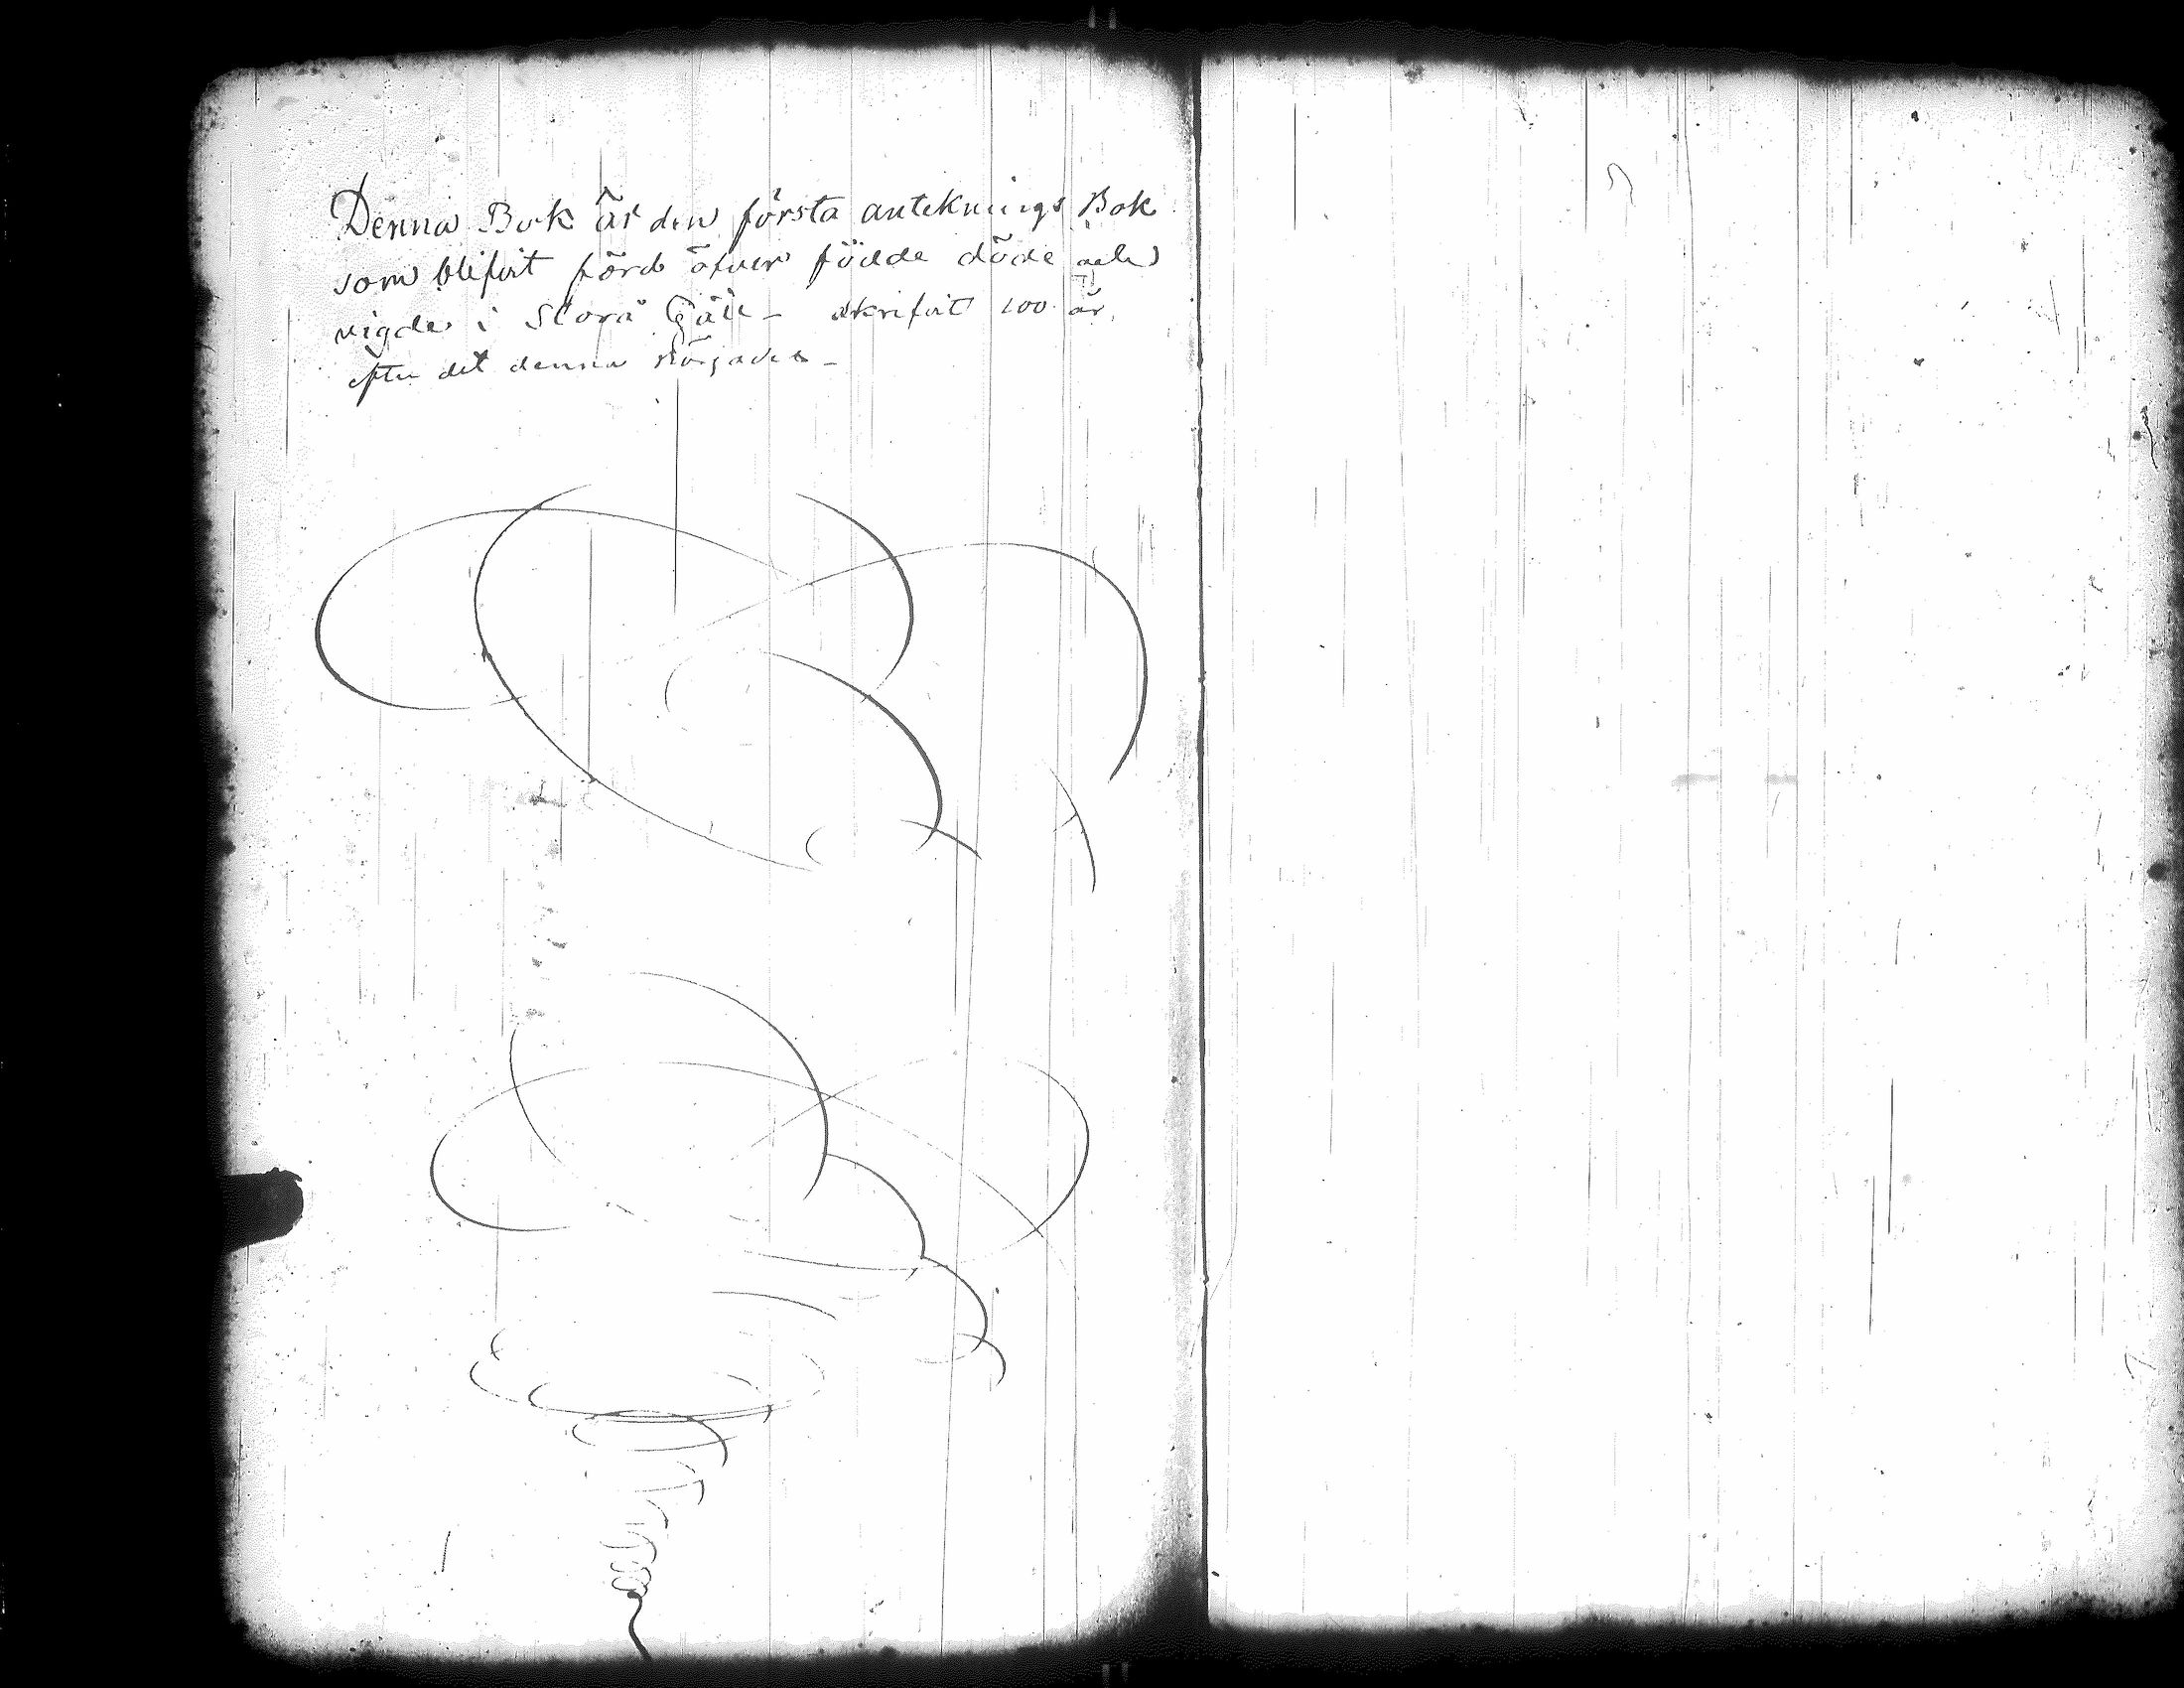 Denna Bok är den första antecknings Bok
som blifvit förd öfver födde döde och
vigde i Stora Gåle – skrifvit 100 år
efter det denna börjades –